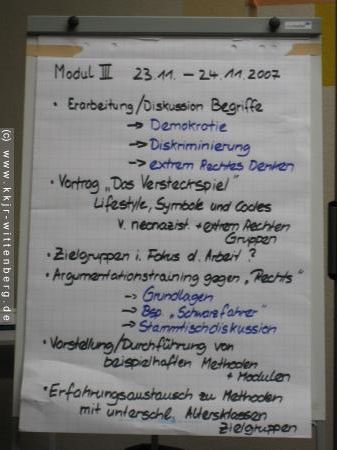 Modul III 23.11. – 24.11.2007
• Erarbeitung/Diskussion Begriffe
→ Demokratie
→ Diskriminierung
→ extrem Rechtes Denken
• Vortrag „Das Versteckspiel"
Lifestyle, Symbole und Codes
v. neonazist. + extrem Rechten
Gruppen
• Zielgruppen i. Fokus d. Arbeit?
• Argumentationstraining gegen „Rechts"
→ Grundlagen
→ Bsp. „Schwarzfahrer"
→ Stammtischdiskussion
• Vorstellung/Durchführung von
beispielhaften Methoden
+ Modulen
• Erfahrungsaustausch zu Methoden
mit unterschl. Altersklassen
Zielgruppen
(c) www.kkjr-wittenberg.de